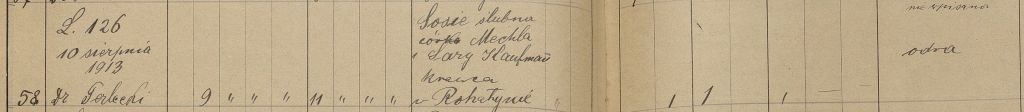 L. 126
10 sierpnia
1913
58 Dr Terlecki 9 " " " 11 " " "
Sosie ślubna
córka Mechla
i Sary Kaufman
krawca
w Rohatynie "
1 1 1
odra